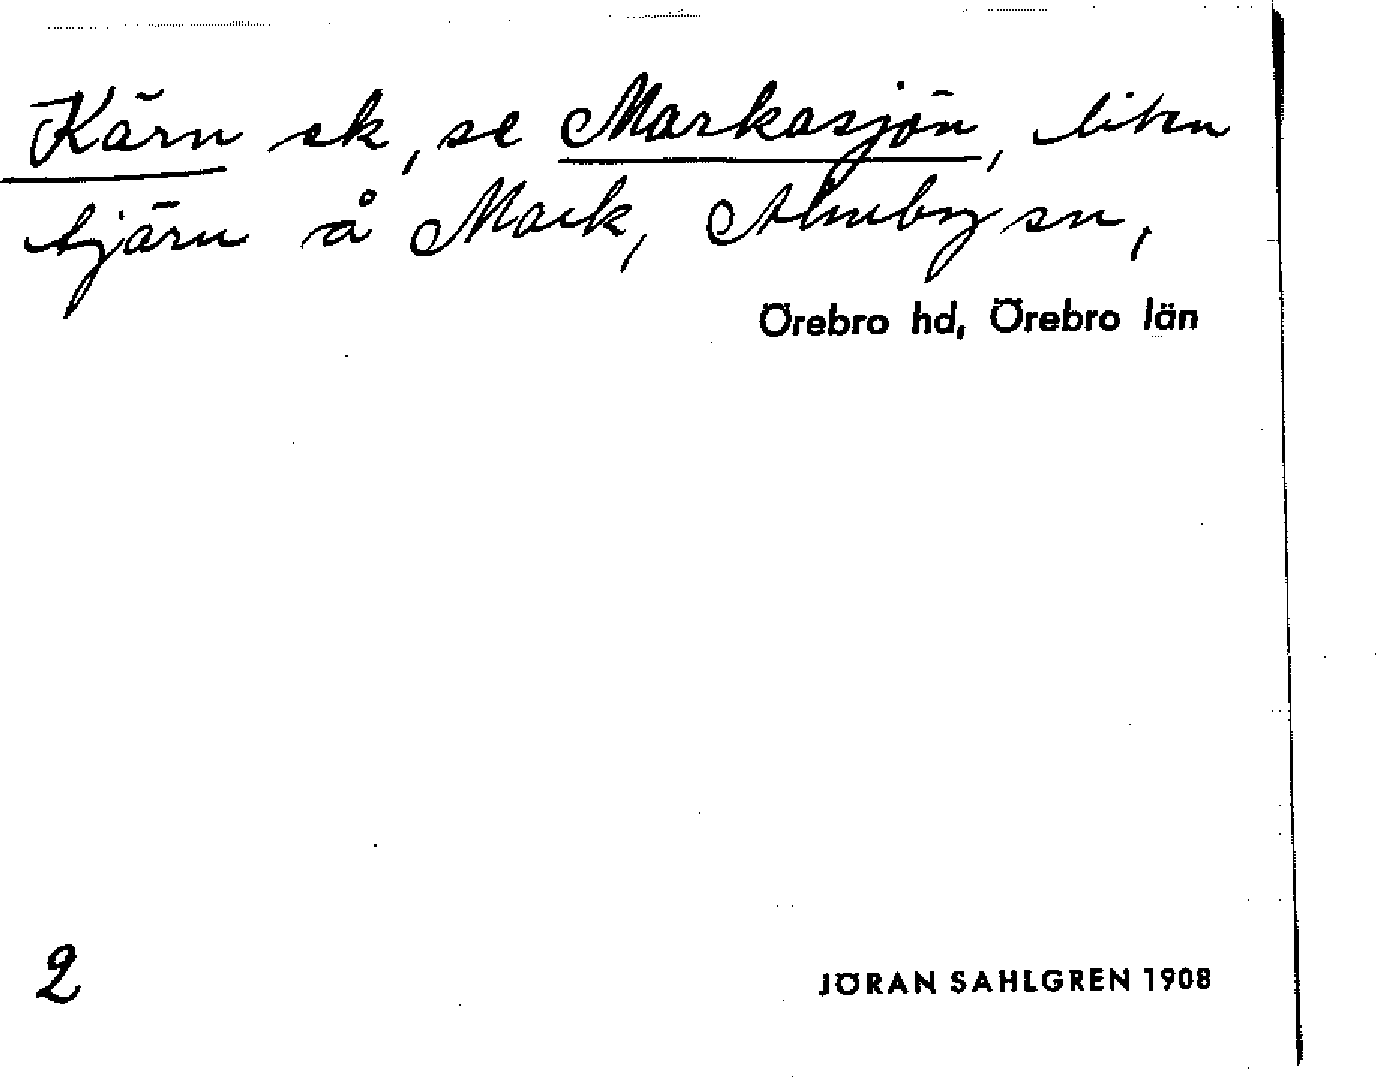 Kärn ek, se Markasjön, liten
tjärn å Mark, Almby sn,
Örebro hd, Örebro län
2
JÖRAN SAHLGREN 1908